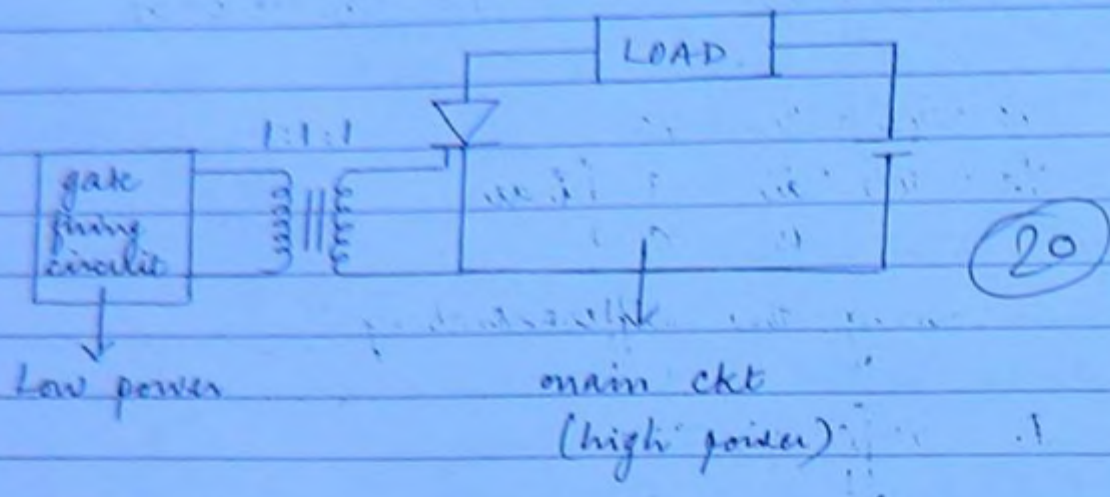 LOAD
1:1:1
gate
firing
circuit
20
Low power
main ckt
(high power)